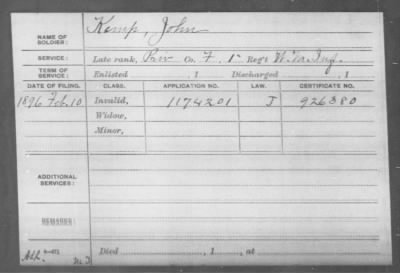 NAME OF SOLDIER: Kemp, John
SERVICE: Late rank, Priv Co. F, 1 Reg't W. Va. Inf.
TERM OF SERVICE: Enlisted , 1 Discharged , 1
DATE OF FILING. CLASS. APPLICATION NO. LAW. CERTIFICATE NO.
1896 Feb. 10 Invalid, 1174201 J 926380
Widow,
Minor,
ADDITIONAL SERVICES:
REMARKS:
Died , 1 , at